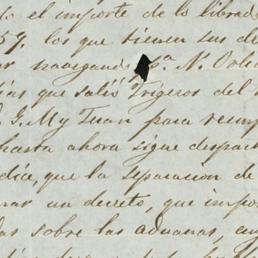 o el importe de lo librad
59. los que tienen sus de
navegand ª N. Vale
ias que salió Trigeros del
G. My Juan para reemp
hasta ahora sigue despach
dice, que la separacion de
nar un decreto, que impo
das sobre las aduanas, cu